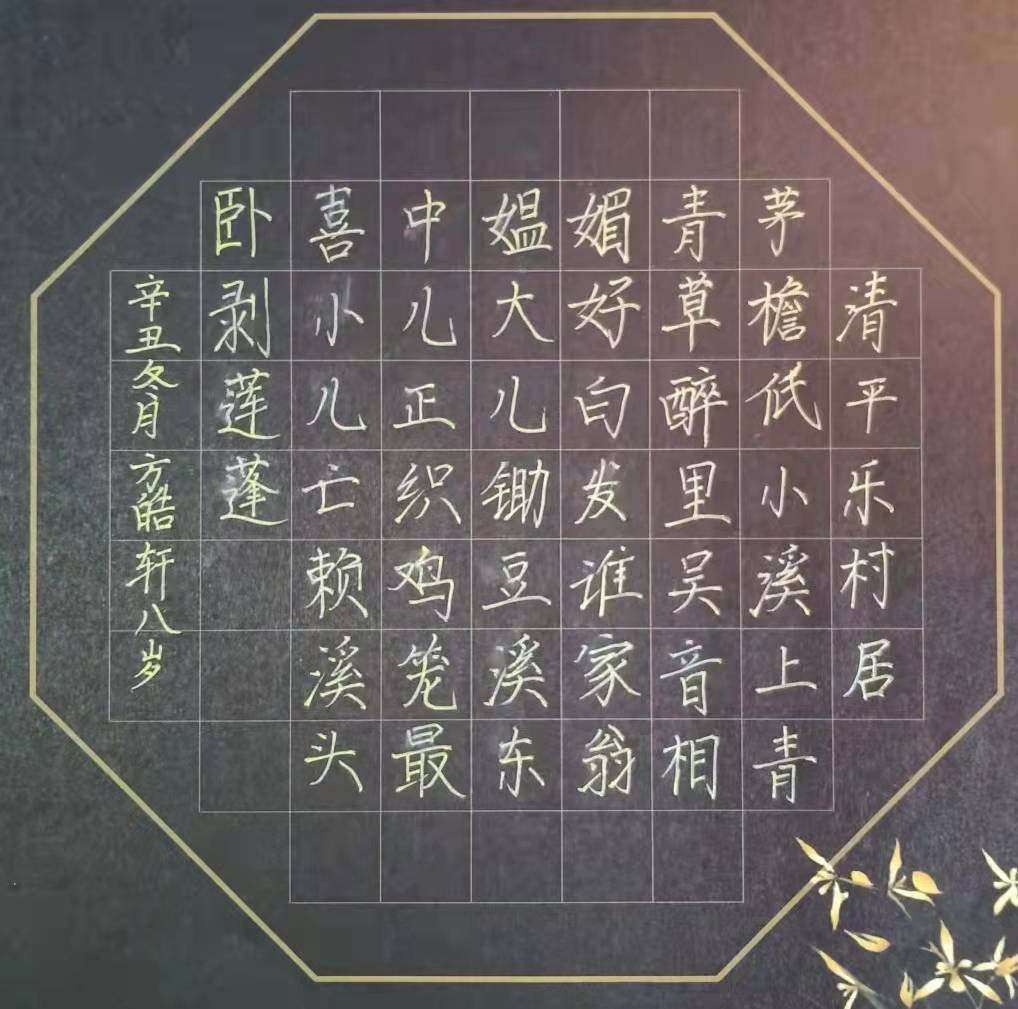 清平乐村居
茅檐低小溪上青
青草醉里吴音相
媚好白发谁家翁
媪大儿锄豆溪东
中儿正织鸡笼最
喜小儿亡赖溪头
卧剥莲蓬
辛丑冬月方皓轩八岁